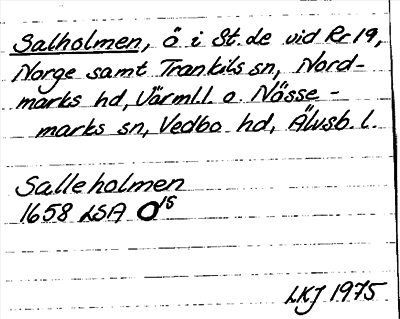 Salholmen, ö i St. de vid Rr 19,
Norge samt Trankils sn, Nord-
marks hd, Värml.l. o. Nösse-
marks sn, Vedbo hd, Älvsb. l.
Salleholmen
1658 LSA O 15
LKJ 1975